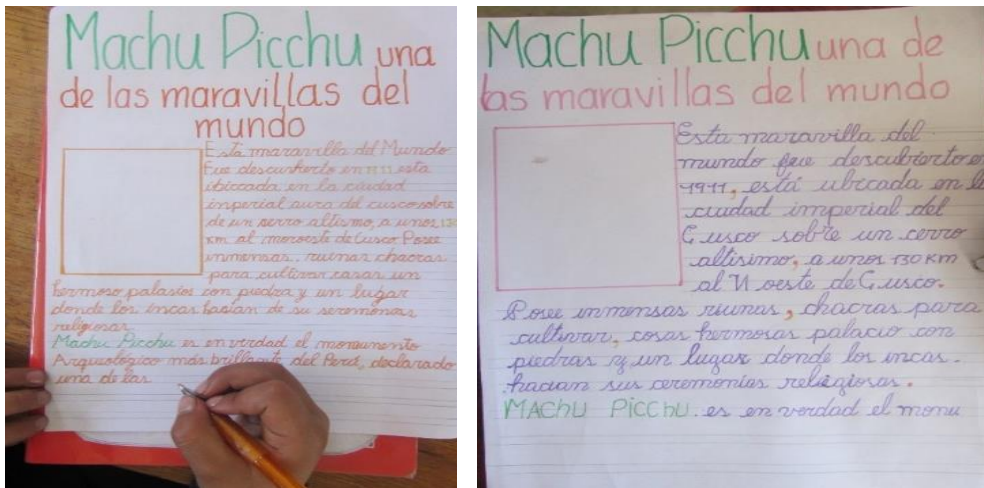 Machu Picchu una
de las maravillas del
mundo
Esta maravilla del Mundo
Fue descubierto en 1911 esta
ibiccada en la ciudad
inperial aura del cusco sobre
de un serro altismo, a unos 130
km al moroeste de Cusco. Posee
inmensas, ruinas chacras
para cultivar casas un
hermoso palasios con piedra y un lugar
donde los incas hasian de su seremonias
religiosas
Machu Picchu es en virdad el monumento
Arqueológico más brillante del Perú, declarado
una de las
Machu Picchu una de
las maravillas del mundo
Esta maravilla del
mundo fue descubierto en
1911, está ubicada en la
ciudad imperial del
Cusco sobre un cerro
altísimo, a unos 130 KM
al N oeste de Cusco.
Posee inmensas ruinas, chacras para
cultivar, cosas hermosas palacio con
piedras y un lugar donde los incas.
hacian sus ceremonias religiosas.
MAChU PICChU. es en verdad el monu